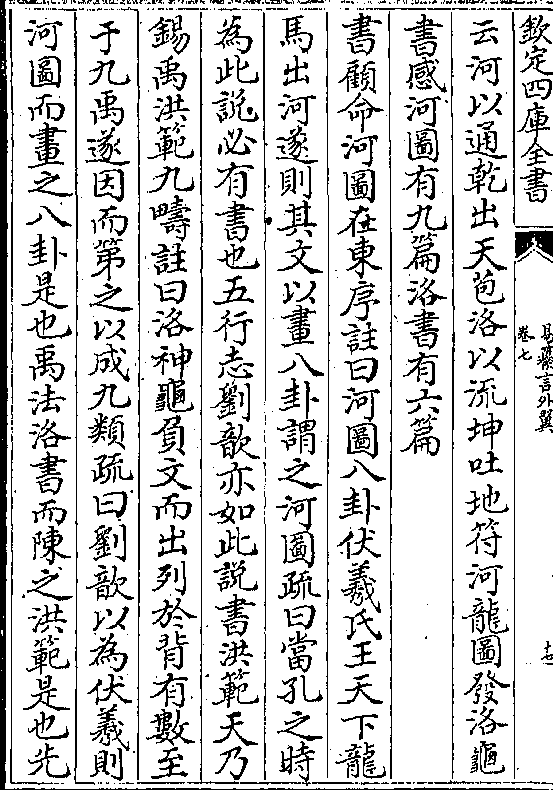 欽定四庫全書
易纂言外翼
卷七
十七
云河以通乾出天苞洛以流坤吐地符河龍圖發洛龜
書感河圖有九篇洛書有六篇
書顧命河圖在東序註曰河圖八卦伏羲氏王天下龍
馬出河遂則其文以畫八卦謂之河圖疏曰當孔之時
為此說必有書也五行志劉歆亦如此說書洪範天乃
錫禹洪範九疇註曰洛神龜負文而出列於背有數至
于九禹遂因而第之以成九類疏曰劉歆以為伏羲則
河圖而畫之八卦是也禹法洛書而陳之洪範是也先